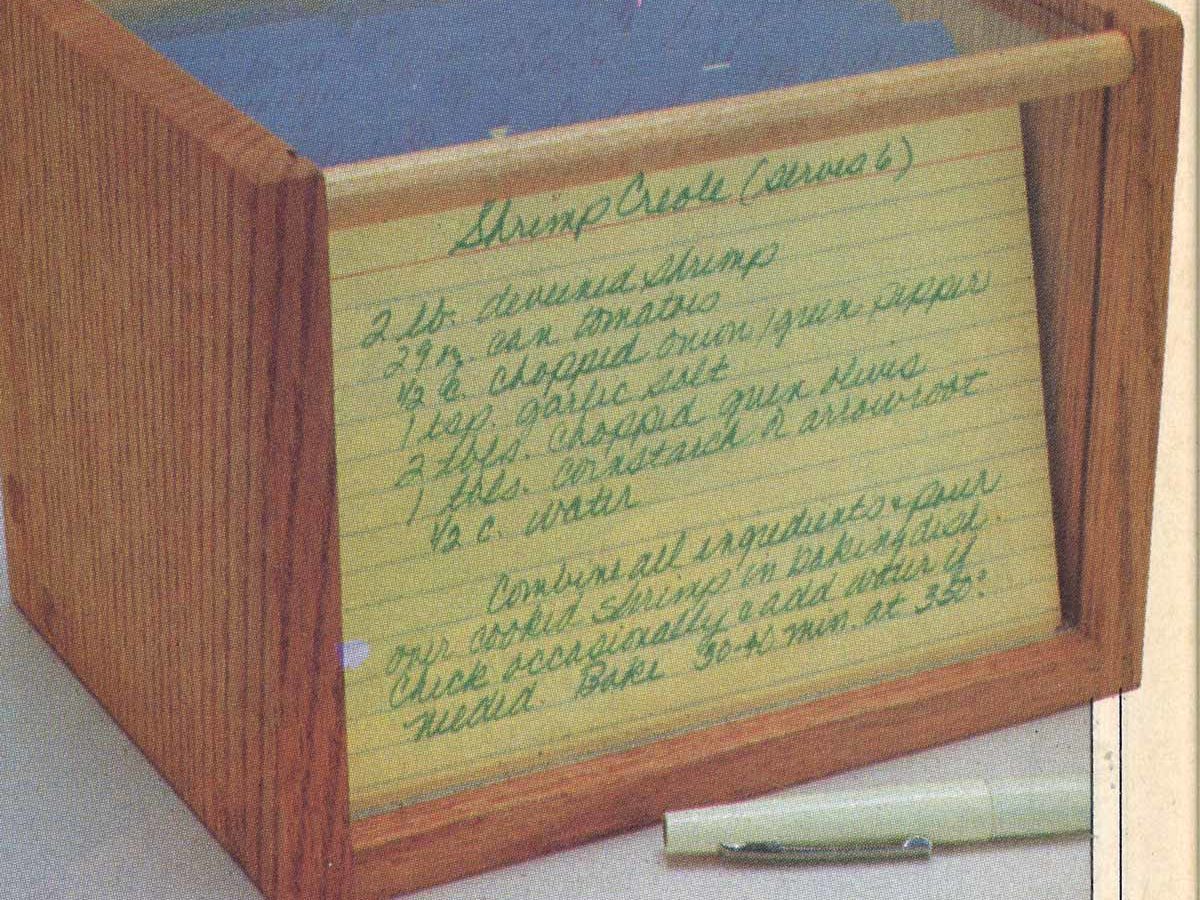 Shrimp Creole (serves 6)
2 lb. deveined shrimp
29 oz. can tomatoes
½ c. chopped onion/green pepper
1 tsp. garlic salt
2 tbls. chopped green olives
1 tbls. cornstarch or arrowroot
½ c. water
Combine all ingredients & pour
over cooked shrimp in baking dish.
Check occasionally & add water if
needed. Bake 30-40 min. at 350°.